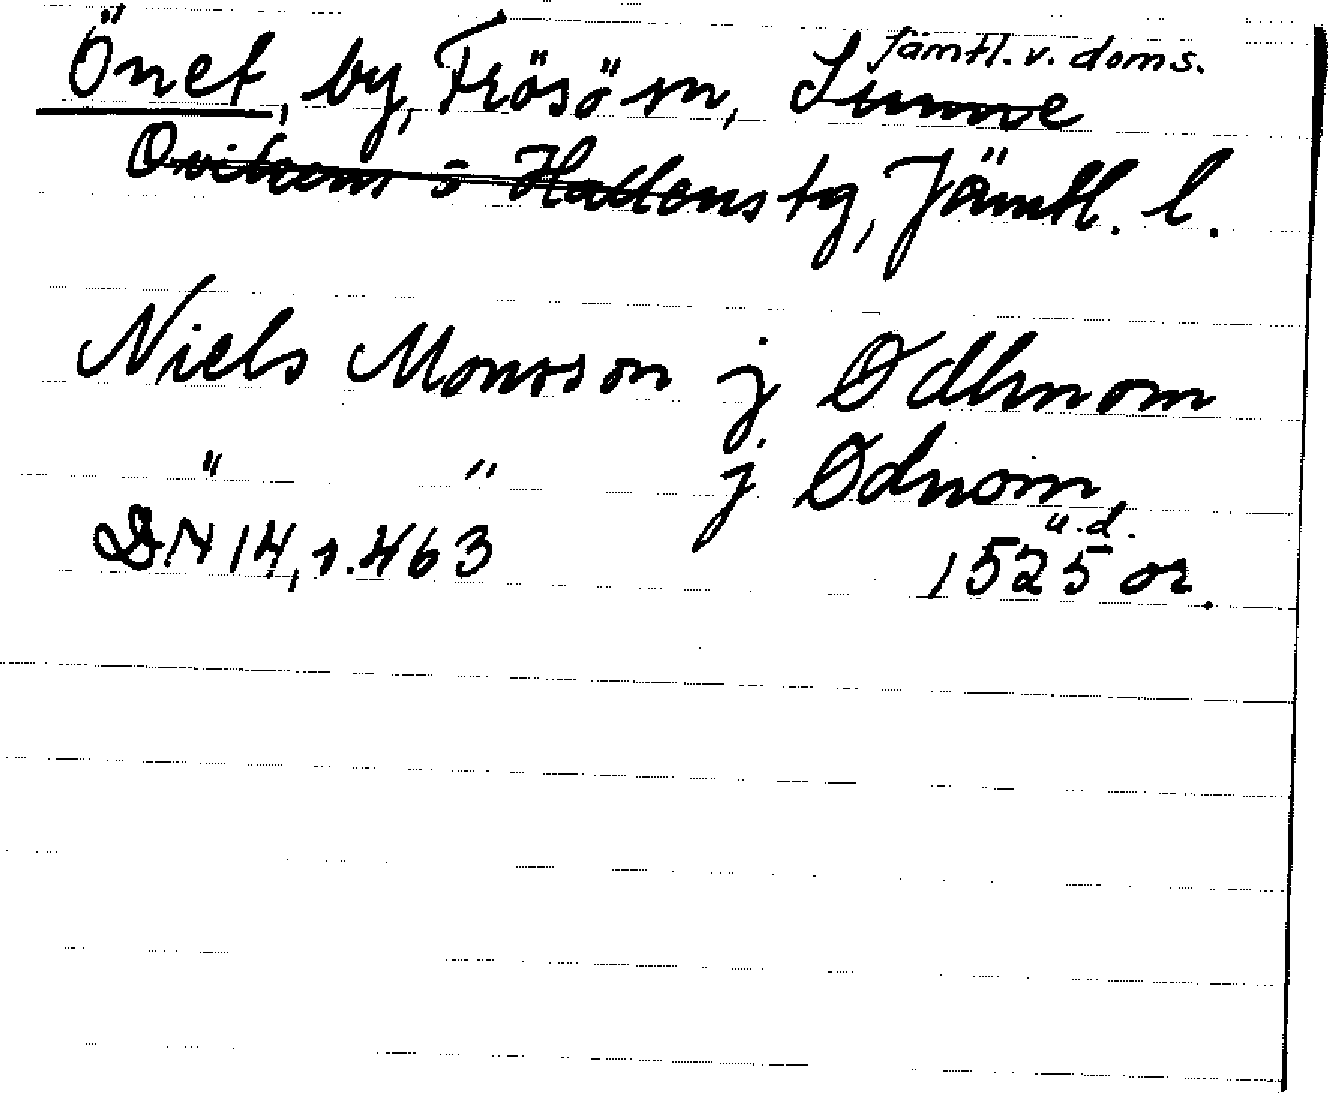 Jämtl. v. doms.
Önet, by, Frösö sn, Sunne
Ovikens o Hallens tg, Jämtl. l.
Niels Monsson j Ødhnom
" " j Ødnom
u.d.
DN 14, s. 463 1525 or.